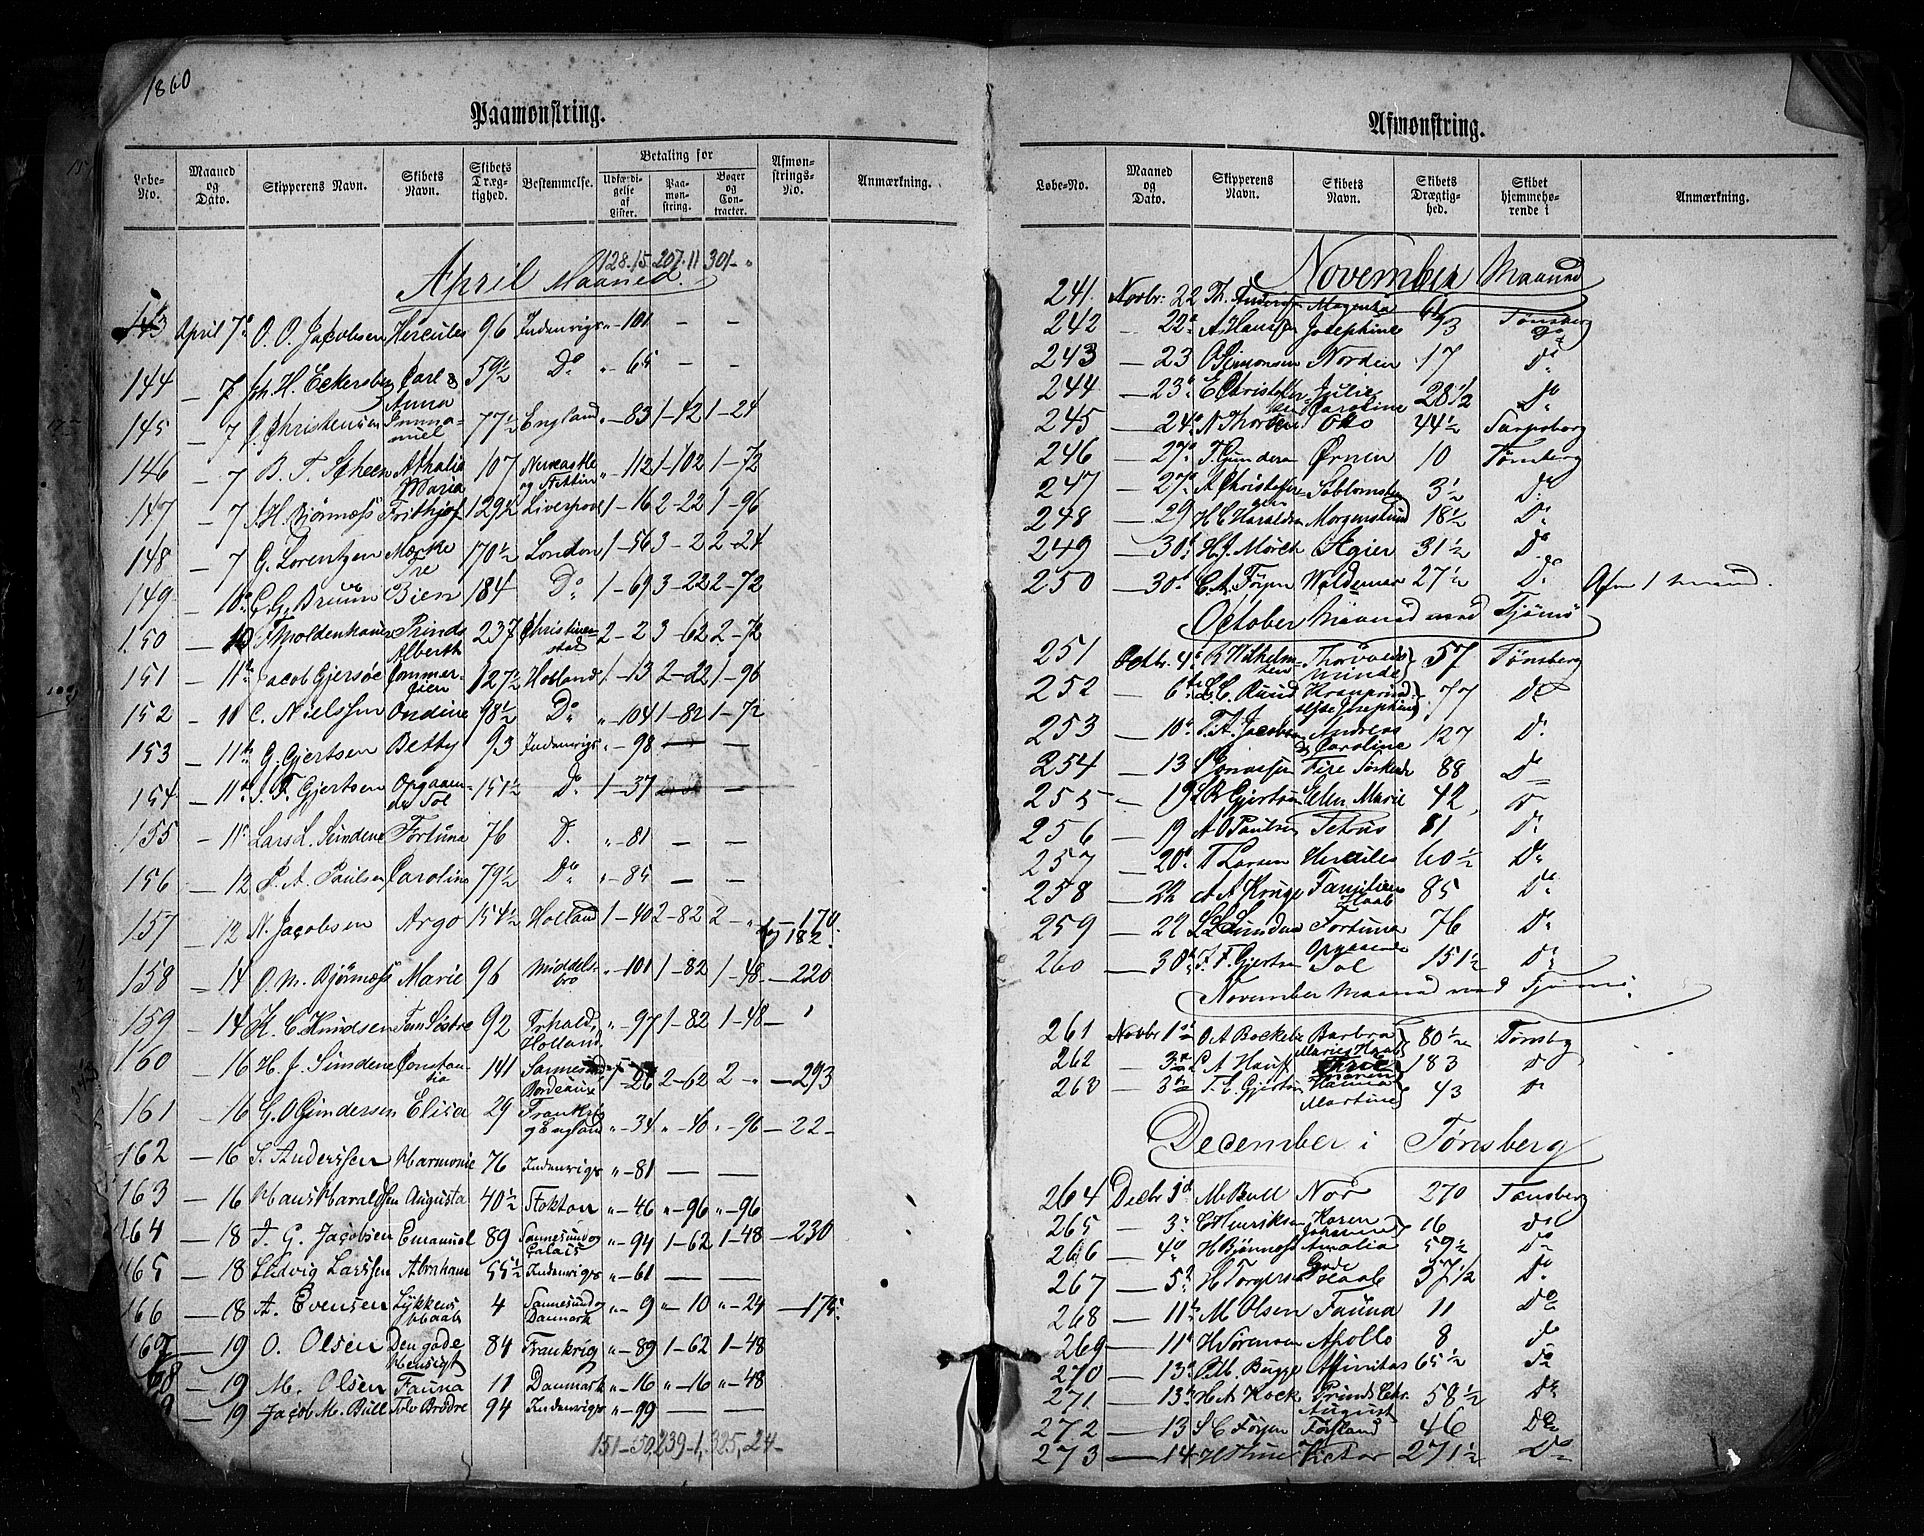 1860
Paamønstring.
Løbe-No. Maaned og Dato. Skipperens Navn. Skibets Navn. Skibets Dræg-tighed. Bestemmelse. Betaling for Udfærdi-gelse af Lister. Paa-møn-string. Bøger og Con-tracter. Afmøn-strings-No. Anmærkning.
128-15 207-11 301- "
April Maaned.
143 April 7de O. O. Jacobsen Hercules 96 Indenrigs "-101 - -
144 - 7 Joh. H. Eckersberg Carl & Anna 59½ Do "-65 - -
145 - 7 J. Christensen Imma-nuel 77½ England "-83 1-42 1-24
146 - 7 B. T. Scheen Athalia Maria 107 Newcastle og Stettin "-112 1-102 1-72
147 - 7 J. H. Bjønness Frithjof 129½ Liverpool 1-16 2-22 1-96
148 - 7 G. Lorentzen Mærke Tre 170½ London 1-56 3-2 2-24
149 - 10de C. G. Bruun Bien 184 Do 1-69 3-22 2-72
150 - 10 F. Moldenhauer Prinds Alberth 237 Christian-stad 2-2 3-62 2-72
151 - 11te Jacob Gjersøe Commer-cien 127½ Holland 1-13 2-22 1-96
152 - 10 C. Nielssen Ondine 98½ Do "-104 1-82 1-72
153 - 11te G. Gjertsen Betty 93 Indenrigs "-98 - -
154 - 11te J. F. Gjertsen Opgaaen-de Sol 151½ Do 1-37 - -
155 - 11te Lars L. Sundene Fortuna 76 D. "-81 - -
156 - 12 P. A. Paulsen Carolina 79½ Do "-85 - -
157 - 12 N. Jacobsen Argo 154½ Holland 1-40 2-82 2-" - 170 og 182
158 - 14 O. M. Bjønness Marie 96 Middels-bro "-101 1-82 1-48 - 220
159 - 14 H. C. Knudsen Fem Søstre 92 Holland "-97 1-82 1-48 -
160 - 16 H. J. Sundene Constan-tia 141 Sannesund Bordeaux 1-26 2-62 2-" - 293
161 - 16 G. O. Gundersen Elisa 29 Frankrig og England "-34 "-40 "-96 - 22-
162 - 16 S. Anderssen Harmonie 76 Indenrigs "-81 - -
163 - 16 Hans Haraldsen Augusta 40½ Stokton "-46 "-96 "-96
164 - 18 A. G. Jacobsen Emanuel 89 Sannesund og Calais "-94 1-62 1-48 - 230
165 - 18 Ludvig Larssen Abraham 55½ Indenrigs "-61 - -
166 - 18 A. Evensen Lykkens Haab 4 Sannesund og Danmark "-9 "-10 "-24 - 175
167 - 19 O. Olsen Den gode Hensigt 84 Frankrig "-89 1-62 1-48
168 - 19 M. Olsen Fauna 11 Danmark "-16 "-16 "-48
9 - 19 Jacob M. Bull Tolv Brødre 94 Indenrigs "-99 - -
151-50, 239-1, 325, 24-
Afmønstring.
Løbe-No. Maaned og Dato. Skipperens Navn. Skibets Navn. Skibets Drægtig-hed. Skibet hjemmehø-rende i Anmærkning.
November Maaned
241. Novbr. 22 Th. Andersen Magentha
242 - 22de A. Hansen Josephine 73 Tønsberg
243 - 23 O. Simonsen Norden 17 Do
244 - 23de E. Christoffer-sen Julie Caroline 28½ Do
245 - 24de N. Thorsen Oko 44½ Sarpsborg
246 - 27de T. Gundersen Ørnen 10 Tønsberg
247 - 27de A. Christoffer-sen Søblomsten 3½ Do
248 - 29 H. C. Haraldsen Morgenstund 18½ Do
249 - 30te H. J. Mørch Ægier 31½ Do
250 - 30te C. A. Føyn Waldemar 27½ Do Afm 1 mand.
October Maaned ved Tjømø
251 Octbr. 4de R. Wilhelm-sen Thorvalds Minde 57 Tønsberg
252 - 6te L. C. Ruud Kronprind-sesse Josephine 77 Do
253 - 10de T. A. Jacobsen Andreas & Caroline 127 Do
254 - 13 Fire Søskende 88 Do
255 - 19 S. B. Gjertsen Ellen Marie 42 Do
256 - 19 A. O. Paulsen Petrus 81 Do
257 - 20de T. Larsen Hercules 60½ Do
258 - 22 A. A. Kruge Familiens Haab 85 Do
259 - 22 L. L. Sunden Fortuna 76 Do
260 - 30te J. F. Gjertsen Opgaaende Sol 151½ Do
November Maaned ved Tjømø.
261 Novbr 1ste O. A. Bockelie Barbra Maries Haab 80½ Tønsbg
262 - 3de L. A. Hauff 183 Do
263 - 3de T. C. Gjertsen Hanna Martine 43 Do
December i Tønsberg
264 Decbr 3d M. Bull Nor 270 Tønsberg
265 - 3de C. Henriksen Karen Johanne 16 Do
266 - 4de H. Bjønness Amalia 59½ Do
267 - 5te H. Torgersen Gode Haab 37½ Do
268 - 11te M. Olsen Fauna 11 Do
269 - 11te H. Sørensen Apollo 8 Do
270 - 13de O. M. Bugge Affinitas 65½ Do
271 - 13de H. A. Kock Prinds Chr. August 58½ Do
272 - 13 S. C. Føyen Føyland 46 Do
273 - 14 H. Thue Victor 271½ Do